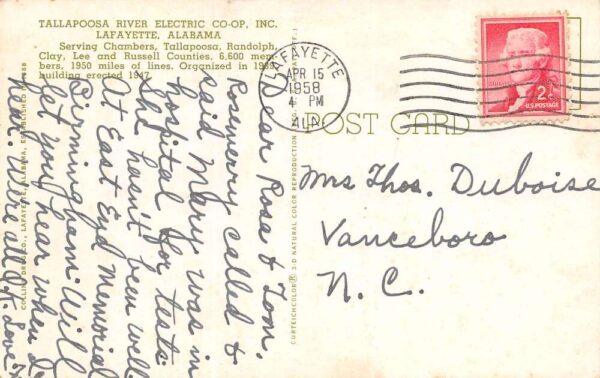 TALLAPOOSA RIVER ELECTRIC CO-OP, INC.
LAFAYETTE, ALABAMA
Serving Chambers, Tallapoosa, Randolph,
Clay, Lee and Russell Counties, 6,600 mem-
bers, 1950 miles of lines. Organized in 1939,
building erected 1947.
Dear Rose & Tom,
Rosemary called &
said Mary was in
hospital for tests.
She hasn't been well.
At East End Memorial
Birmingham. Will
let you hear when I
hear. We're all O.K. Love
COLLINS DRUG CO., LAFAYETTE, ALABAMA
CURTEICHCOLOR® 3-D NATURAL COLOR REPRODUCTION
LAFAYETTE
APR 15
1958
4 PM
ALA.
2¢
U.S. POSTAGE
POST CARD
Mrs Thos. Duboise
Vanceboro
N. C.